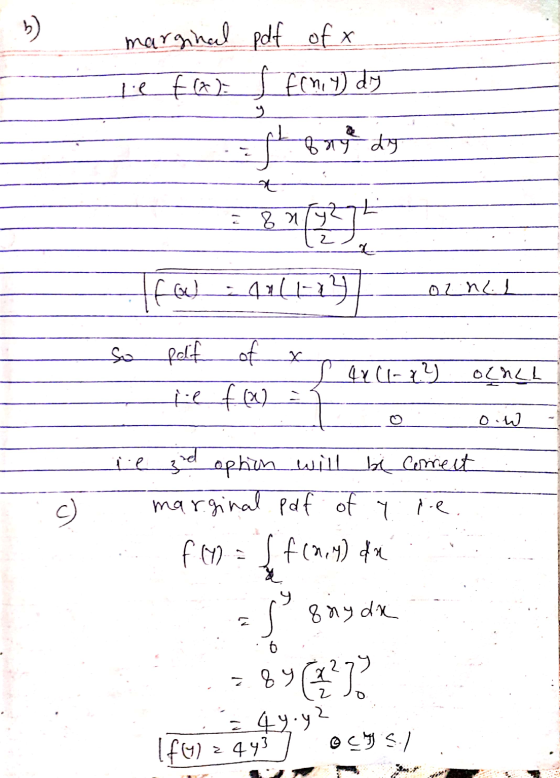 b) marginal pdf of x
i.e f(x) = ∫_y f(x,y) dy
= ∫_x^1 8xy dy
= 8x [y²/2]_x^1
f(x) = 4x(1-x²) 0<x<1
So pdf of x
i.e f(x) = { 4x(1-x²) 0<x<1
0 0.w
i.e 3rd option will be correct
c) marginal pdf of y i.e.
f(y) = ∫_x f(x,y) dx
= ∫_0^y 8xy dx
= 8y [x²/2]_0^y
= 4y·y²
f(y) = 4y³ 0≤y≤1